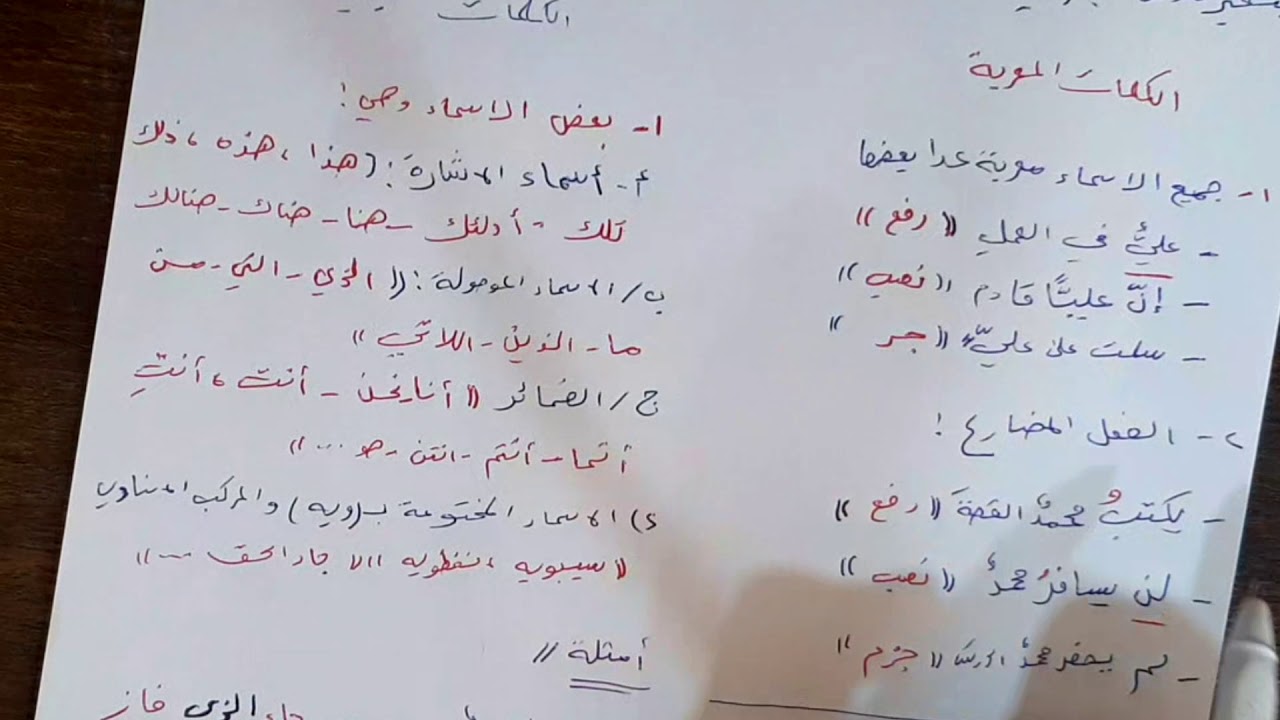 الكلمات المعربة
١- جميع الاسماء معربة عدا بعضها
- عليٌّ في العمل "رفع"
- إنّ عليًّا قادم "نصب"
- سلمت على عليٍّ "جر"
٢- الفعل المضارع:
- يكتبُ محمدٌ القصةَ "رفع"
- لن يسافرَ محمدٌ "نصب"
- لم يحضر محمدٌ الدرسَ "جزم"
الكلمات
١- بعض الاسماء وهي:
أ- أسماء الاشارة: (هذا، هذه، ذلك
تلك - أولئك - هنا - هناك - هنالك
ب/ الاسماء الموصولة: "الذي - التي - من
ما - الذين - اللاتي"
ج/ الضمائر "أنا - نحن - أنتَ، أنتِ
أنتما - أنتم - انتن - هو ..."
د) الاسماء المختومة بـ(ويه) والمركب
"سيبويه، نفطويه، جاد الحق ..."
أمثلة //
الذي فاز